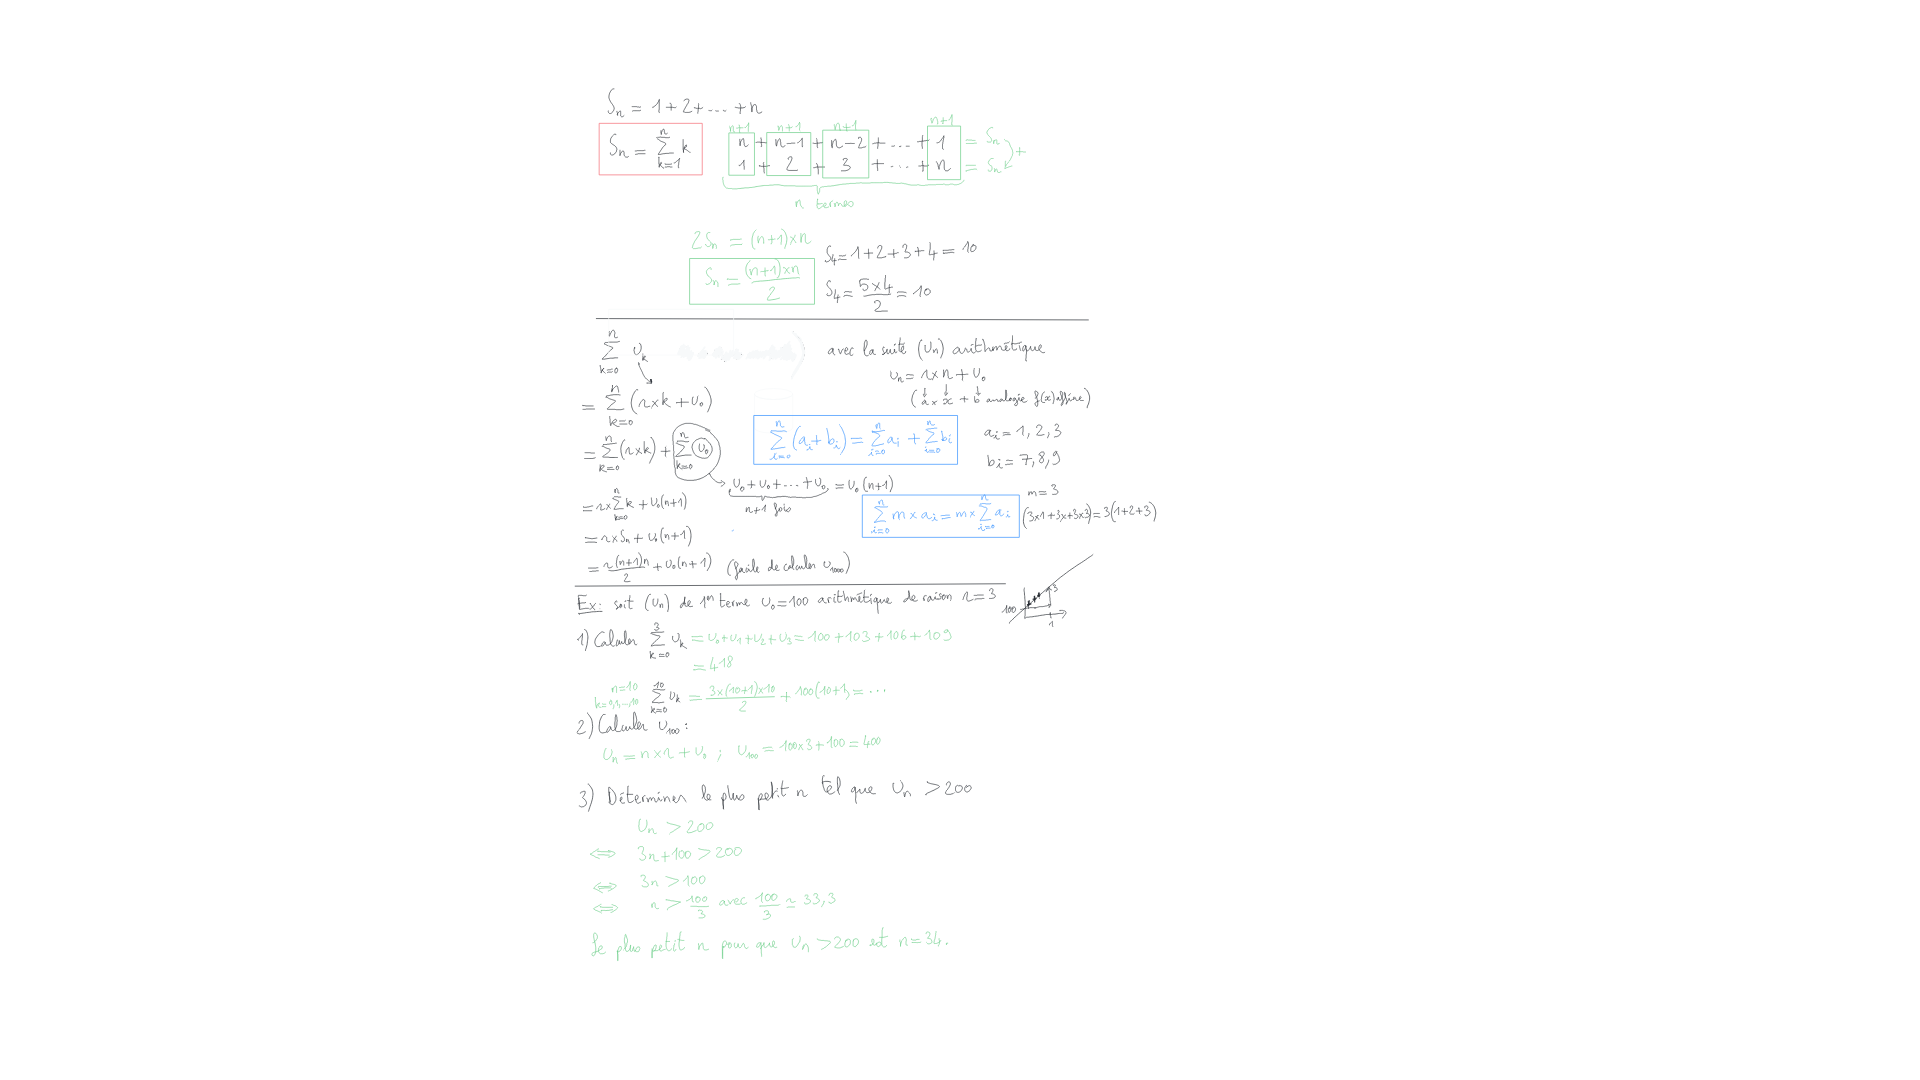 Sn = 1 + 2 + ... + n
Sn = ∑_{k=1}^{n} k
n+1 n+1 n+1 n+1
n + n-1 + n-2 + ... + 1 = Sn
1 + 2 + 3 + ... + n = Sn +
n termes
2Sn = (n+1)×n
S4 = 1+2+3+4 = 10
Sn = (n+1)×n / 2
S4 = 5×4 / 2 = 10
∑_{k=0}^{n} Uk avec la suite (Un) arithmétique
Un = r×n + U0
= ∑_{k=0}^{n} (r×k + U0) (a × x + b analogie f(x) affine)
= ∑_{k=0}^{n} (r×k) + ∑_{k=0}^{n} U0
∑_{i=0}^{n} (ai + bi) = ∑_{i=0}^{n} ai + ∑_{i=0}^{n} bi
ai = 1, 2, 3
bi = 7, 8, 9
U0 + U0 + ... + U0 = U0(n+1)
n+1 fois
= r×∑_{k=0}^{n} k + U0(n+1)
∑_{i=0}^{n} m × ai = m × ∑_{i=0}^{n} ai
m = 3
(3×1+3×+3×3) = 3(1+2+3)
= r×Sn + U0(n+1)
= r(n+1)n / 2 + U0(n+1) (facile de calculer U1000)
Ex: soit (Un) de 1er terme U0=100 arithmétique de raison r=3
100 3 1
1) Calculer ∑_{k=0}^{3} Uk = U0+U1+U2+U3 = 100+103+106+109
= 418
n=10
k=0,1,...,10 ∑_{k=0}^{10} Uk = 3×(10+1)×10 / 2 + 100(10+1) = ...
2) Calculer U100 :
Un = n×r + U0 ; U100 = 100×3+100 = 400
3) Déterminer le plus petit n tel que Un > 200
Un > 200
⟺ 3n+100 > 200
⟺ 3n > 100
⟺ n > 100/3 avec 100/3 ≃ 33,3
Le plus petit n pour que Un > 200 est n=34.